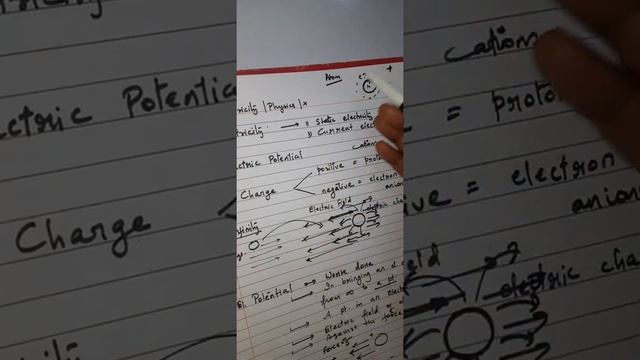 Atom
e-
+
ricity | Physics | x
tricity → 1) Static electricity
2) Current elec
ectric Potential
cations
Charge
positive = proto
negative = electron
anion
Electric Field
electric cha
El. Potential → Work done
→ In bringing an el. c
from ∞ to a pt.
→ A pt in an el
Electric field or el
→ Against the force
Force of
ctric Potential
Charge
cations
= proto
ive = electron
anion
eld
electric cha